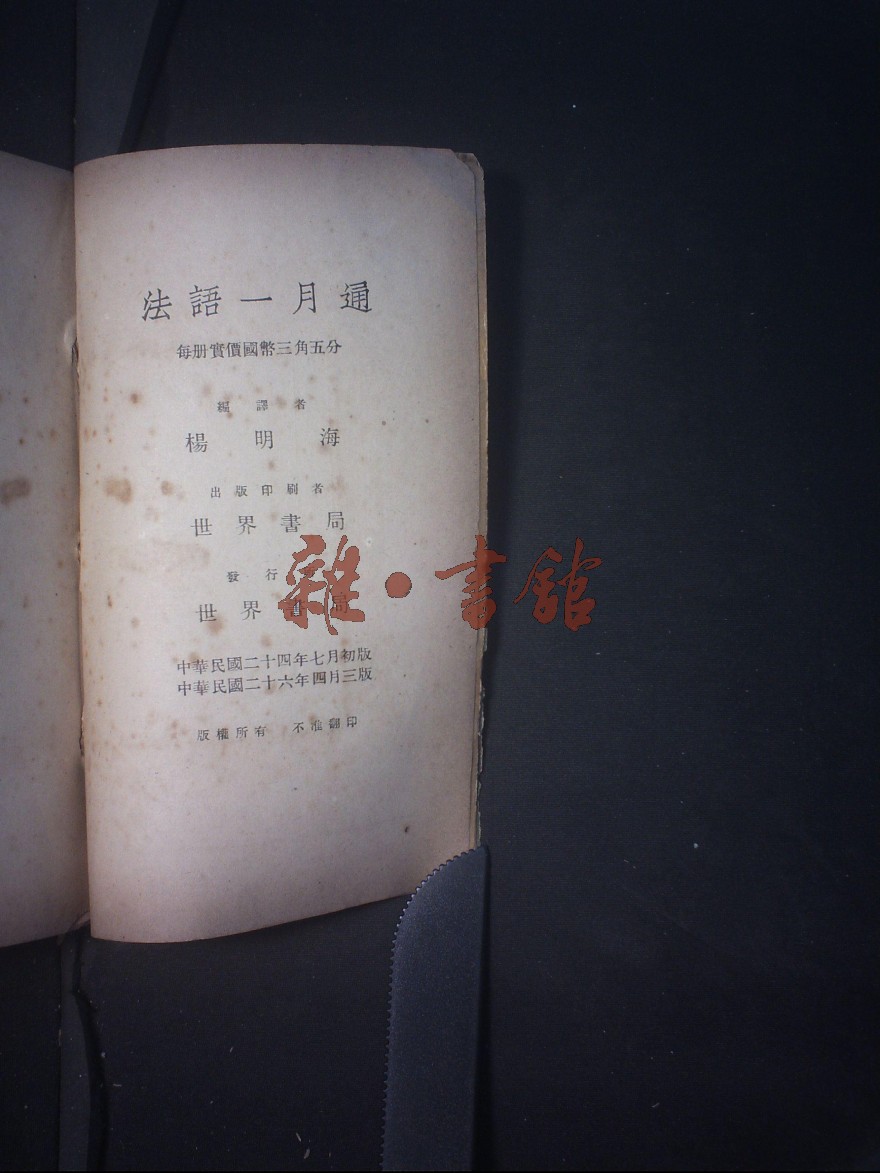 法語一月通
每册實價國幣三角五分
編譯者
楊明海
出版印刷者
世界書局
發行
世界書局
中華民國二十四年七月初版
中華民國二十六年四月三版
版權所有 不准翻印
雜·書館